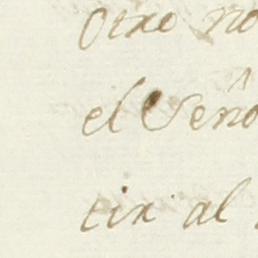 Otro no
el Seño
tir al